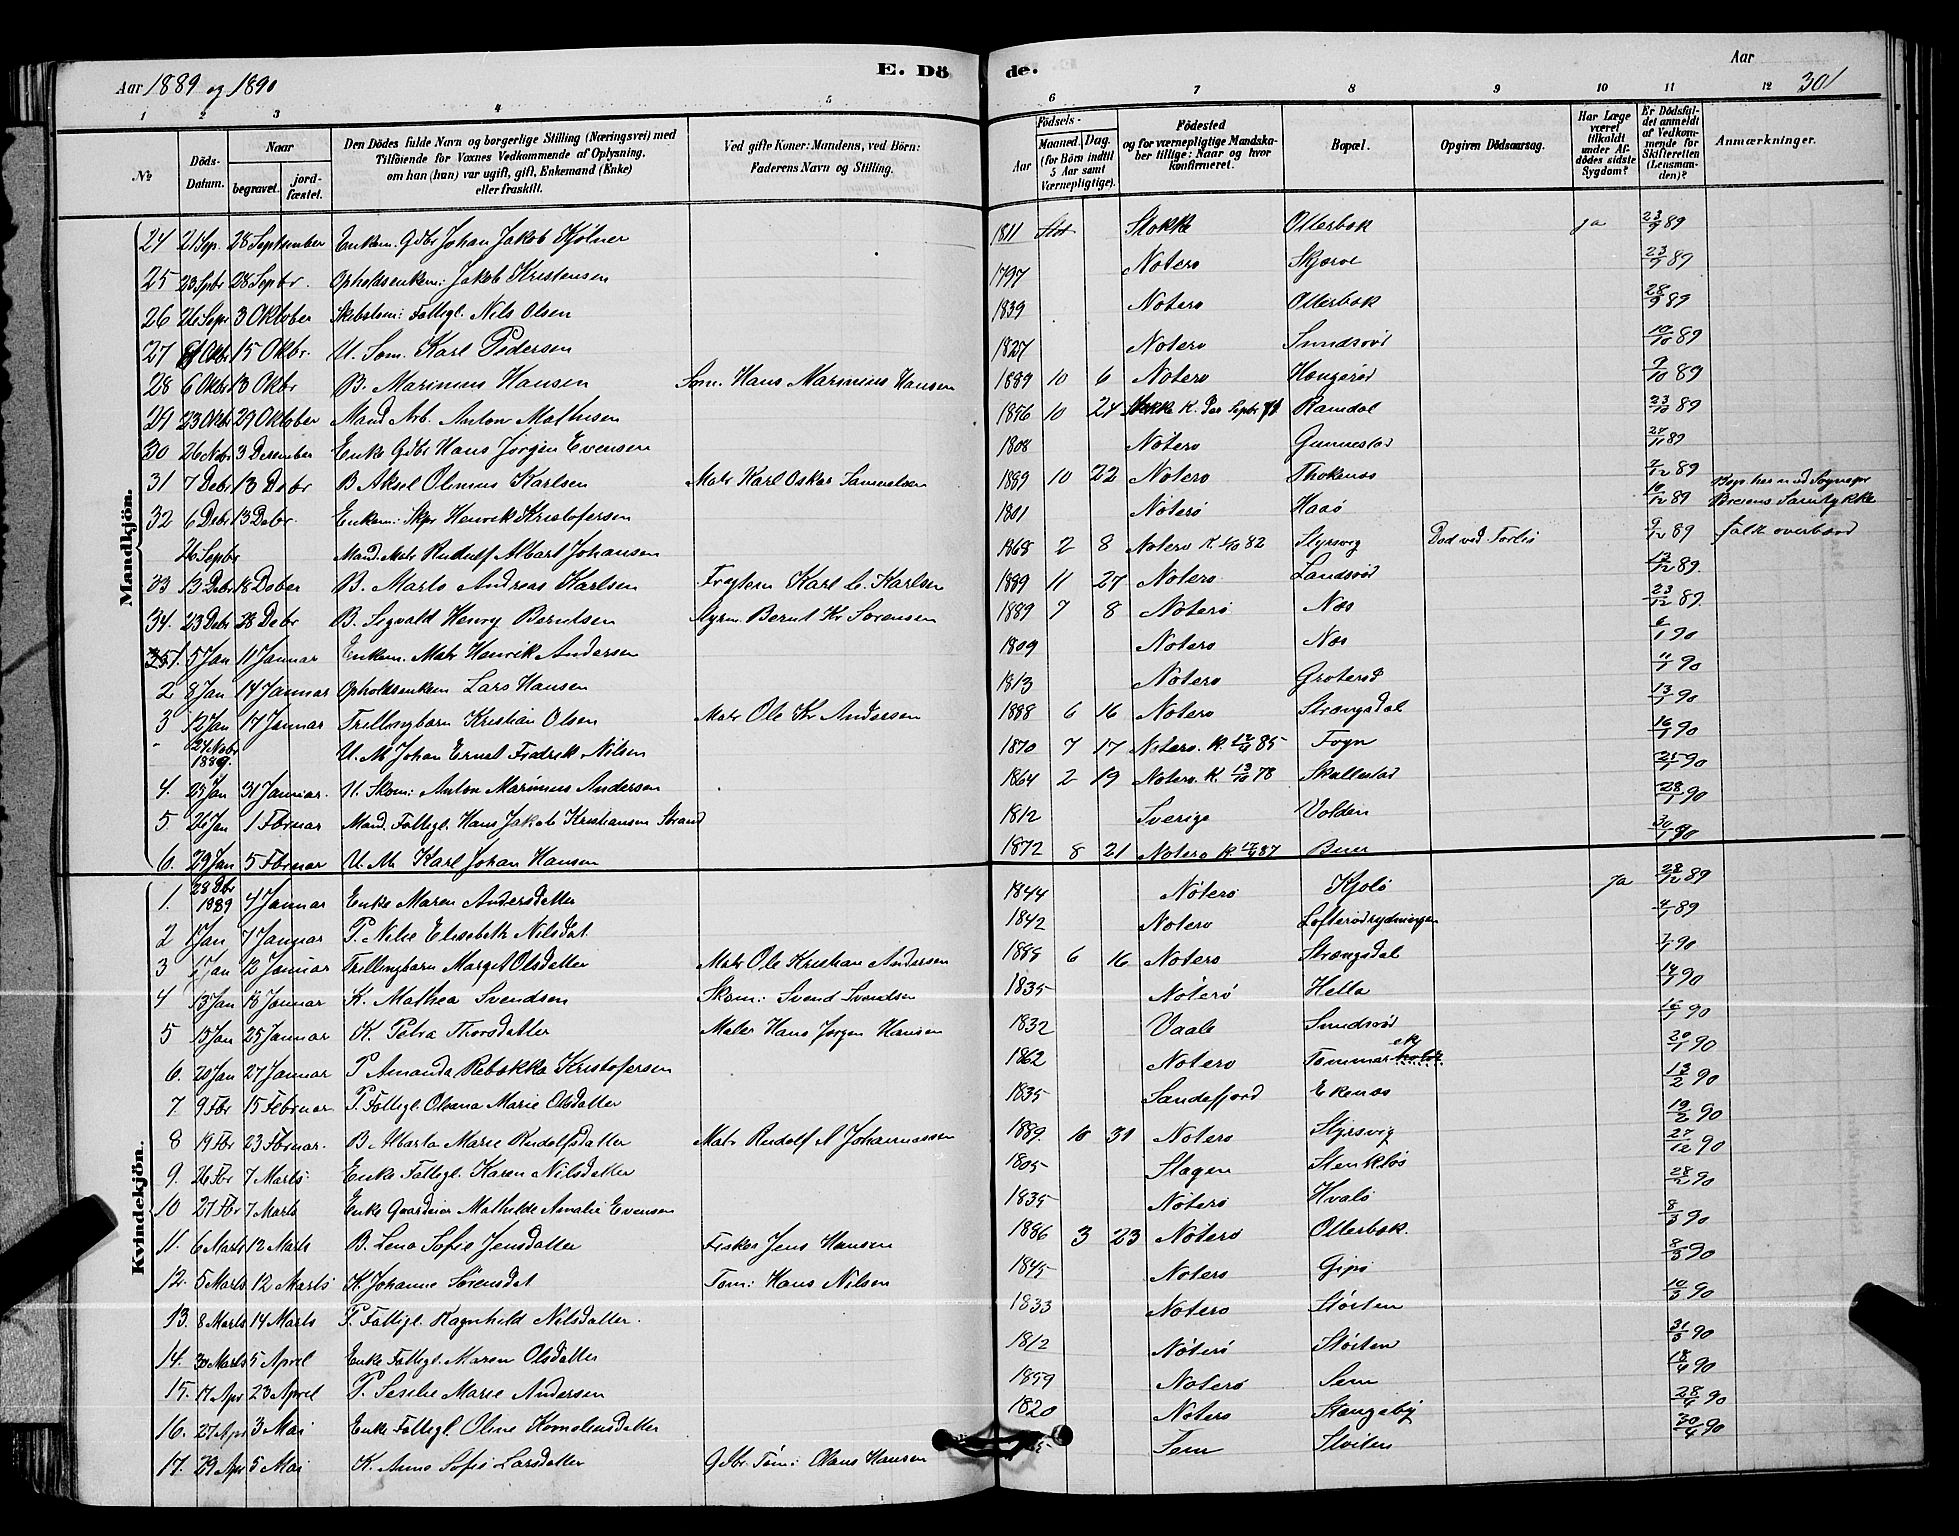 Aar 1889 og 1890
E. Dö de.
Aar
301
1 2 3 4 5 6 7 8 9 10 11 12
№ Döds-Datum. Naar begravet. jord-fæstet. Den Dödes fulde Navn og borgerlige Stilling (Næringsvei) med Tilföiende for Voxnes Vedkommende af Oplysning, om han (hun) var ugift, gift, Enkemand (Enke) eller fraskilt. Ved gifte Koner: Mandens, ved Börn: Faderens Navn og Stilling. Födsels- Aar Maaned. Dag. (for Börn indtil 5 Aar samt Værnepligtige). Födested og for værnepligtige Mandskaber tillige: Naar og hvor konfirmeret. Bopæl. Opgiven Dödsaarsag. Har Læge været tilkaldt under Afdödes sidste Sygdom? Er Dödsfaldet anmeldt af Vedkommende for Skifteretten (Lensmanden)? Anmærkninger.
Mandkjön.
24 21 Sep. 28 September Enkem. Gdbr Johan Jakob Kjölner 1811 Stokke Otterbæk ja 23/9 89
25 23 Spbr 28 Sepbr. Opholdsenkem: Jakob Kristensen 1797 Notero Skjerve 23/9 89
26 26 Sepr 3 Oktober Fattigl. Nils Olsen 1839 Notero Otterbæk 28/9 89
27 Okbr 15 Okbr. U. Söm. Karl Pedersen 1827 Notero Smidsröd 10/10 89
28 6 Okbr 13 Okbr B. Marinius Hansen Söm. Hans Marinius Hansen 1889 10 6 Notero Haugeröd 9/10 89
29 23 Okbr 29 Oktober Mand Arb. Anton Mathisen 1856 10 24 Ramdal 23/10 89
30 26 Nobr 3 Desember Enke Gdbr Hans Jörgen Evensen 1808 Nöterö Gunnestad 27/11 89
31 7 Debr 13 Debr B Aksel Olinius Karlsen Matr Karl Oskar Samuelsen 1889 10 22 Nöterö Thokenes 7/12 89
32 6 Debr 13 Debr. Enkem: Skpr Henrik Kristofersen 1801 Nöterö Haaö 10/12 89
26 Sepbr Mand. Matr Rudolf Albart Johansen 1868 2 8 Nöterö K. 1/10 82 Styrsvig Död ved Forlis 9/12 89 faldt overbord
33 13 Debr 18 Deber B. Marto Andreas Karlsen Karl C. Karlsen 1889 11 27 Nöterö Landsröd 13/12 89.
34. 23 Debr 28 Debr B. Sigvald Henry Berntsen Myrm. Bernt Kr Sörensen 1889 7 8 Nöterö Næs 23/12 89.
1. 5 Jan 11 Januar Enkem. Matr Henrik Andersen 1809 Nöterö Næs 6/1 90
2 8 Jan 14 Januar Opholdsenkem Lars Hansen 1813 Nöterö Groteröd 11/1 90
3 12 Jan 17 Januar Trillingbarn Kristian Olsen Matr Ole Kr Andersen 1888 6 16 Nöterö Strengsdal 13/1 90
24 Nobr 1889. U. M Johan Ernst Fredrik Nilsen 1870 7 17 Nöterö. K. 85 Foyn 16/1 90
4. 25 Jan 31 Januar. U. Skom: Anton Marinius Andersen 1864 2 19 Nöterö. K. 13/10 78 Skallestad 25/1 90
5. 26 Jan 1 Februar Mand. Fattigl. Hans Jakob Kristiansen Strand 1812 Sverige Volden 28/1 90
6. 29 Jan 5 Februar U. M Karl Johan Hansen 1872 8 21 Nöterö K. 87 Buer 30/1 90
Kvindekjön.
1. 28 Dbr 1889 4 Januar Enke Maren Andersdatter 1844 Nöterö Kjölö Ja 28/12 89
2 1 Jan 7 Januar P. Nilie Elisebeth Nilsdat. 1842 Nöterö Lofterödrydningen 89
3 7 Jan 12 Januar Trillingbarn Marget Olsdatter Matr Ole Kristian Andersen 1889 6 16 Nöterö Strengsdal 7/1 90
4 13 Jan 18 Januar K. Mathea Svendsen Skom: Svend Svendsen 1835 Nöterö Hella 14/1 90
5 15 Jan 25 Januar K. Petra Thorsdatter Maler Hans Jörgen Hansen 1832 Vaale Smidsröd 15/1 90
6. 20 Jan 27 Januar P Amanda Rebekka Kristofersen 1862 Nöterö 20/1 90
7. 9 Fbr 15 Februar P. Fattigl. Olvana Marie Olsdatter 1835 Sandefjord Ekenes 13/2 90
8 19 Fbr 23 Februar. B Marta Marie Rudolfsdatter Matr Rudolf A Johannessen 1889. 10 31 Nöterö Styrsvig 19/2 90
9. 26 Fbr 7 Marts Enke Fattigl. Karen Nilsdatter 1805 Slagen Stenklös 27/12 90
10 27 Fbr 7 Marts Enke Gaardeier Mathilde Amalie Evensen 1835 Nöterö Hvalö 28/2 90
11. 6 Marts 12 Marts B. Lena Sofie Jensdatter Fisker Jens Hansen 1886 3 23 Nöterö Otterbæk. 8/3 90
12. 5 Marts 12 Marts K. Johanne Sörensdat Töm: Hans Nilsen 1845 Nöterö Gipö 8/3 90
13. 8 Marts 14 Marts P. Fattigl. Ragnhild Nilsdatter. 1833 Nöterö Stöiten 10/3 90
14. 30 Marts 5 April Enke Fattigl. Maren Olsdatter 1812 Nöterö Stöiten 31/3 90
15. 17 Apr 23 April P. Marie Andersen 1859 Nöterö Sem 18/4 90
16. 27 Apr 3 Mai Enke Fattigl. Oline Korneliusdatter 1820 Nöterö Stangeby 28/4 90
17. 29 Apr 5 Mai K. Anne Sofie Larsdatter Gdbr Töm: Claus Hansen Sem Stöiten 30/4 90